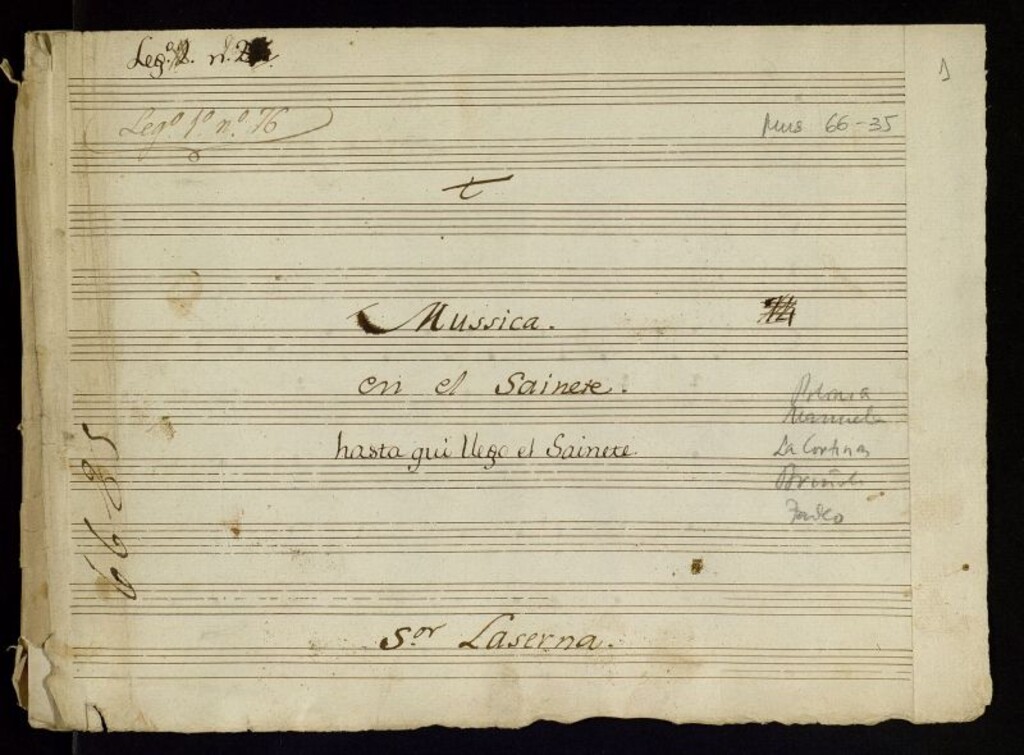 Leg.º 2. n.º 2
Leg.º 1.º n.º 76
Mus 66-35
t
Mussica.
en el Sainete.
hasta qui llego el Sainete
Polonia
Manuela
La Cortinas
Briñoli
Tadeo
Sor Laserna.